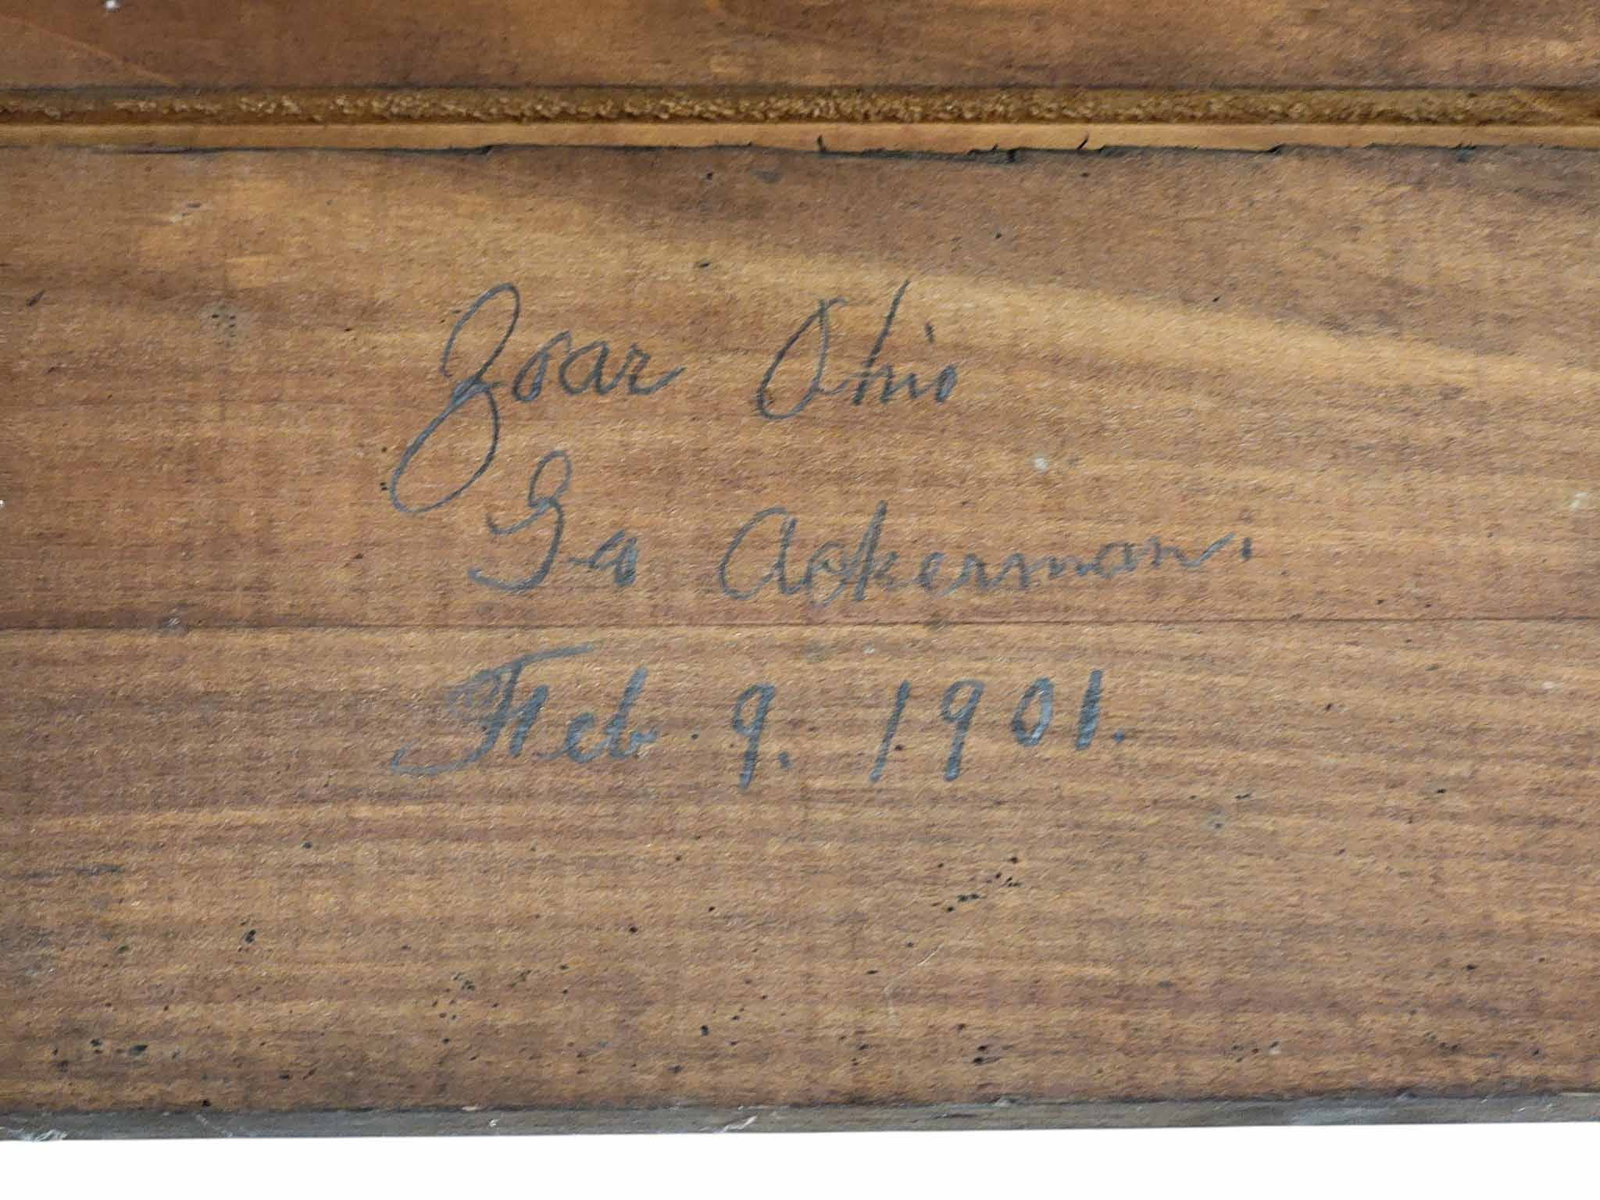 Zoar Ohio
Geo Ackerman.
Feb. 9. 1901.